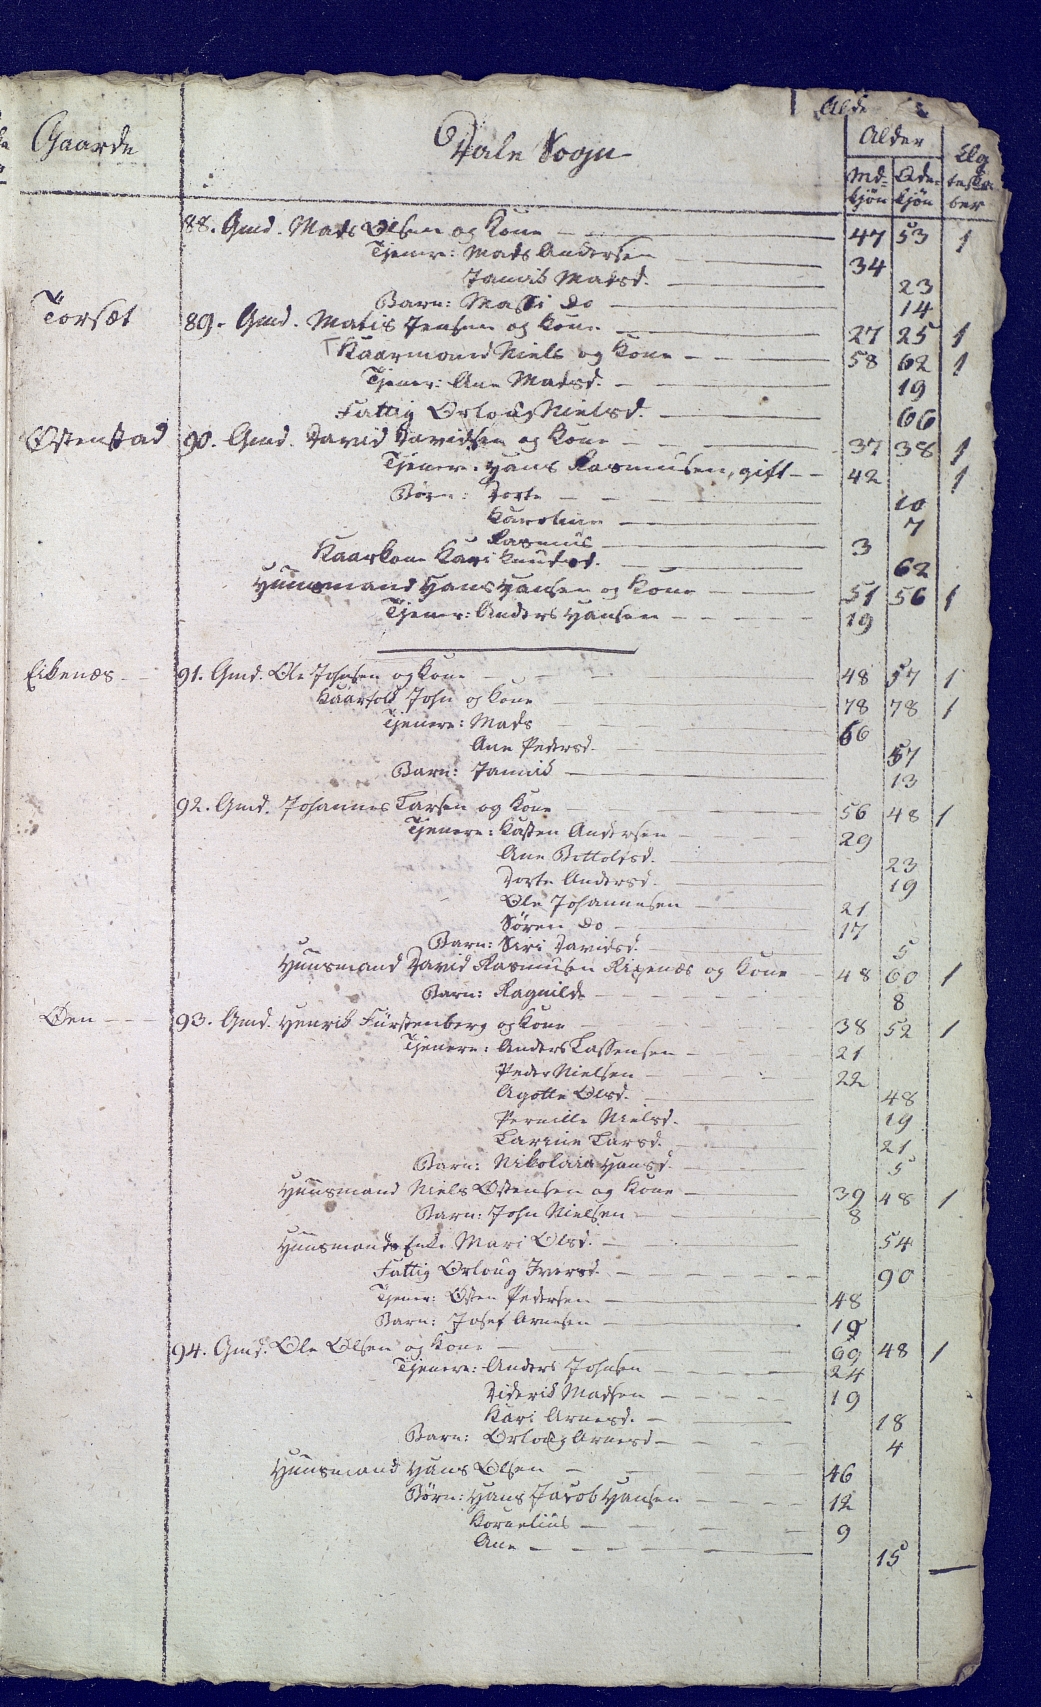 Alder
Gaarde Dale Sogn Alder
Md-kjön Qde-kjön Ægteskaber
88. Gmd. Mads Olsen og Kone 47 53 1
Tjenere: Mads Andersen 34
Jannik Madsd. 23
Barn: Massi do 14
Torsæt 89. Gmd. Matis Jensen og Kone 27 25 1
Kaarmand Niels og Kone 58 62 1
Tjener: Ane Madsd. 19
Fattig Orloug Nielsd. 66
Østenstad 90. Gmd. David Davidsen og Kone 37 38 1
Tjenere: Hans Rasmusen, gift 42 1
Börn: Dorte 10
Karoline 7
Rasmus 3
Kaarkone Kari Knudsd. 62
Huusmand Hans Hansen og Kone 51 56 1
Tjener: Anders Hansen 19
Eikenæs 91. Gmd. Ole Johnsen og Kone 48 57 1
Kaarfolk John og Kone 78 78 1
Tjenere: Mads 66
Ane Pedersd. 57
Barn: Jannik 13
92. Gmd. Johannes Larsen og Kone 56 48 1
Tjenere: Kasten Andersen 29
Ane Bottolfsd. 23
Dorte Andersd. 19
Ole Johannesen 21
Sören do 17
Barn: Siri Davidsd. 5
Huusmand David Rasmusen Ripenæs og Kone 48 60 1
Barn: Ragnilde 8
Øen 93. Gmd. Henrik Fürstenberg og Kone 38 52 1
Tjenere: Anders Lassensen 21
Peder Nielsen 22
Agotte Olsd. 48
Pernille Nielsd. 19
Karine Larsd. 21
Barn: Nikolaia Hansd. 5
Huusmand Niels Østensen og Kone 39 48 1
Barn: John Nielsen 8
Huusmands Enke Mari Olsd. 54
Fattig Orloug Iversd. 90
Tjener: Østen Pedersen 48
Barn: Josef Arnesen 19
94. Gmd. Ole Olsen og Kone 69 48 1
Tjenere: Anders Johnsen 24
Diderik Madsen 19
Kari Arnesd. 18
Barn: Orloug Arnesd 4
Huusmand Hans Olsen 46
Börn: Hans Jacob Hansen 12
Kornelius 9
Ane 15